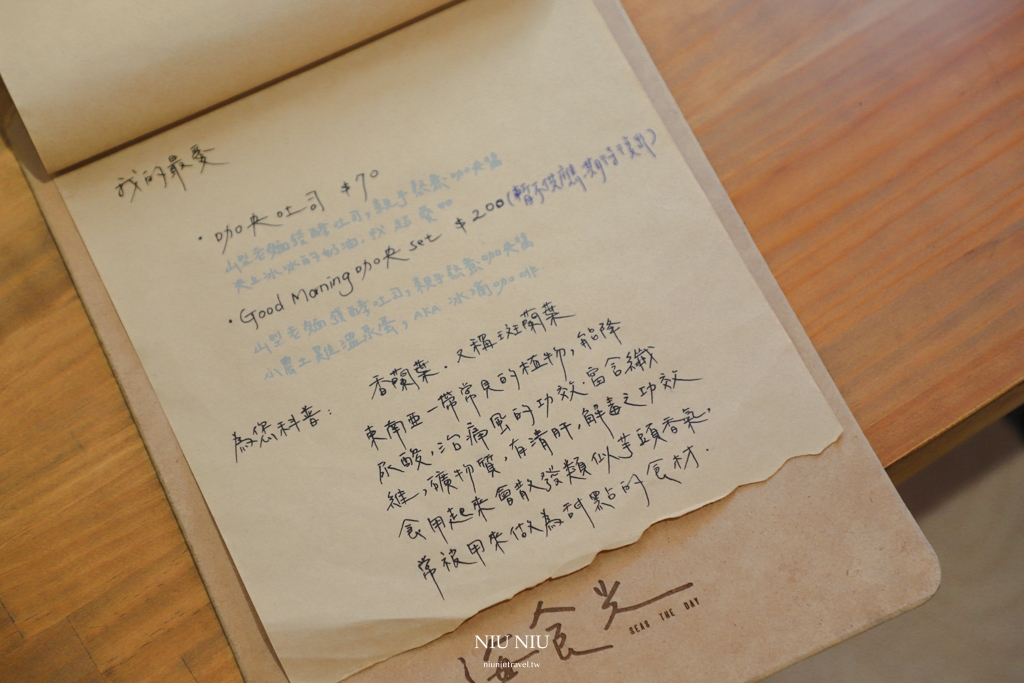 我的最愛
・咖央吐司 $70
山型老麵發酵吐司,親手熬煮咖央醬
夾上冰冰的奶油,
・Good Morning 咖央 set $200(暫不供應,
山型老麵發酵吐司,親手熬煮咖央醬
小農土雞溫泉蛋,AKA 冰滴咖啡
為您科普:
香蘭葉.又稱斑蘭葉
東南亞一帶常見的植物,能降
尿酸,治痛風的功效.富含纖
維,礦物質,有清肝,解毒之功效
食用起來會散發類似芋頭香氣.
常被用來做為甜點的食材.
食光
SEAR THE DAY
NIU NIU
niuniutravel.tw